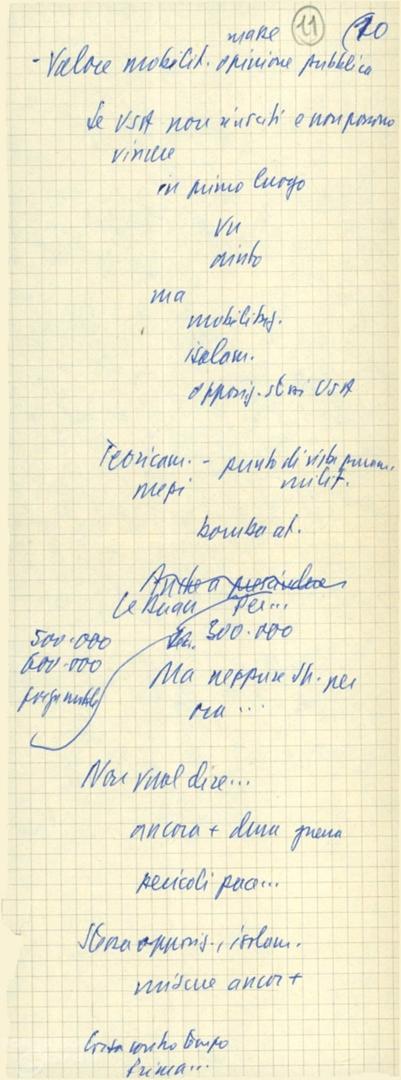 11 10
- Valore mobilit. opinione pubblica
Se USA non riusciti e non possono
vincere
in primo luogo
VN
aiuto
ma
mobilitaz.
isolam.
opposiz. stessi USA
Teoricam. - punto di vista puram.
milit.
mezzi
bomba at.
Anche a
Le Duan Per...
500.000
600.000
300.000
Ma neppure
ora ...
Non vuol dire...
ancora + dura guerra
pericoli pace...
Stessa opposiz., isolam.
ancor +
Corsa contro tempo
Prima...